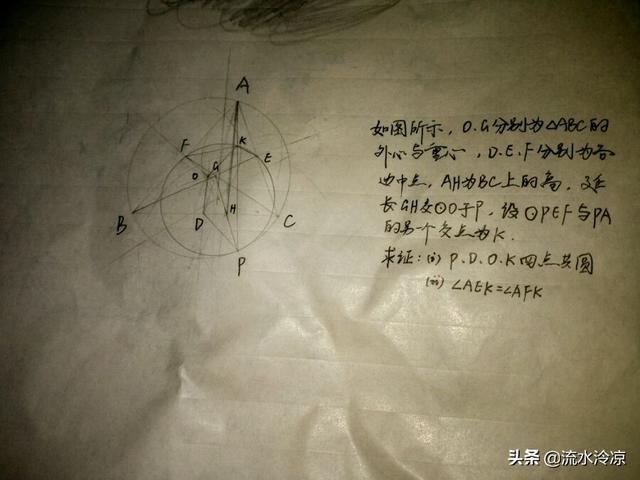 如图所示，O.G分别为△ABC的
外心与重心，D.E.F分别为各
边中点，AH为BC上的高，延
长GH交⊙O于P，设⊙PEF与PA
的另一个交点为K.
求证：(i) P.D.O.K四点共圆
(ii) ∠AEK=∠AFK
A
K
F
E
G
O
B
D
H
C
P
头条 @流水泠凉